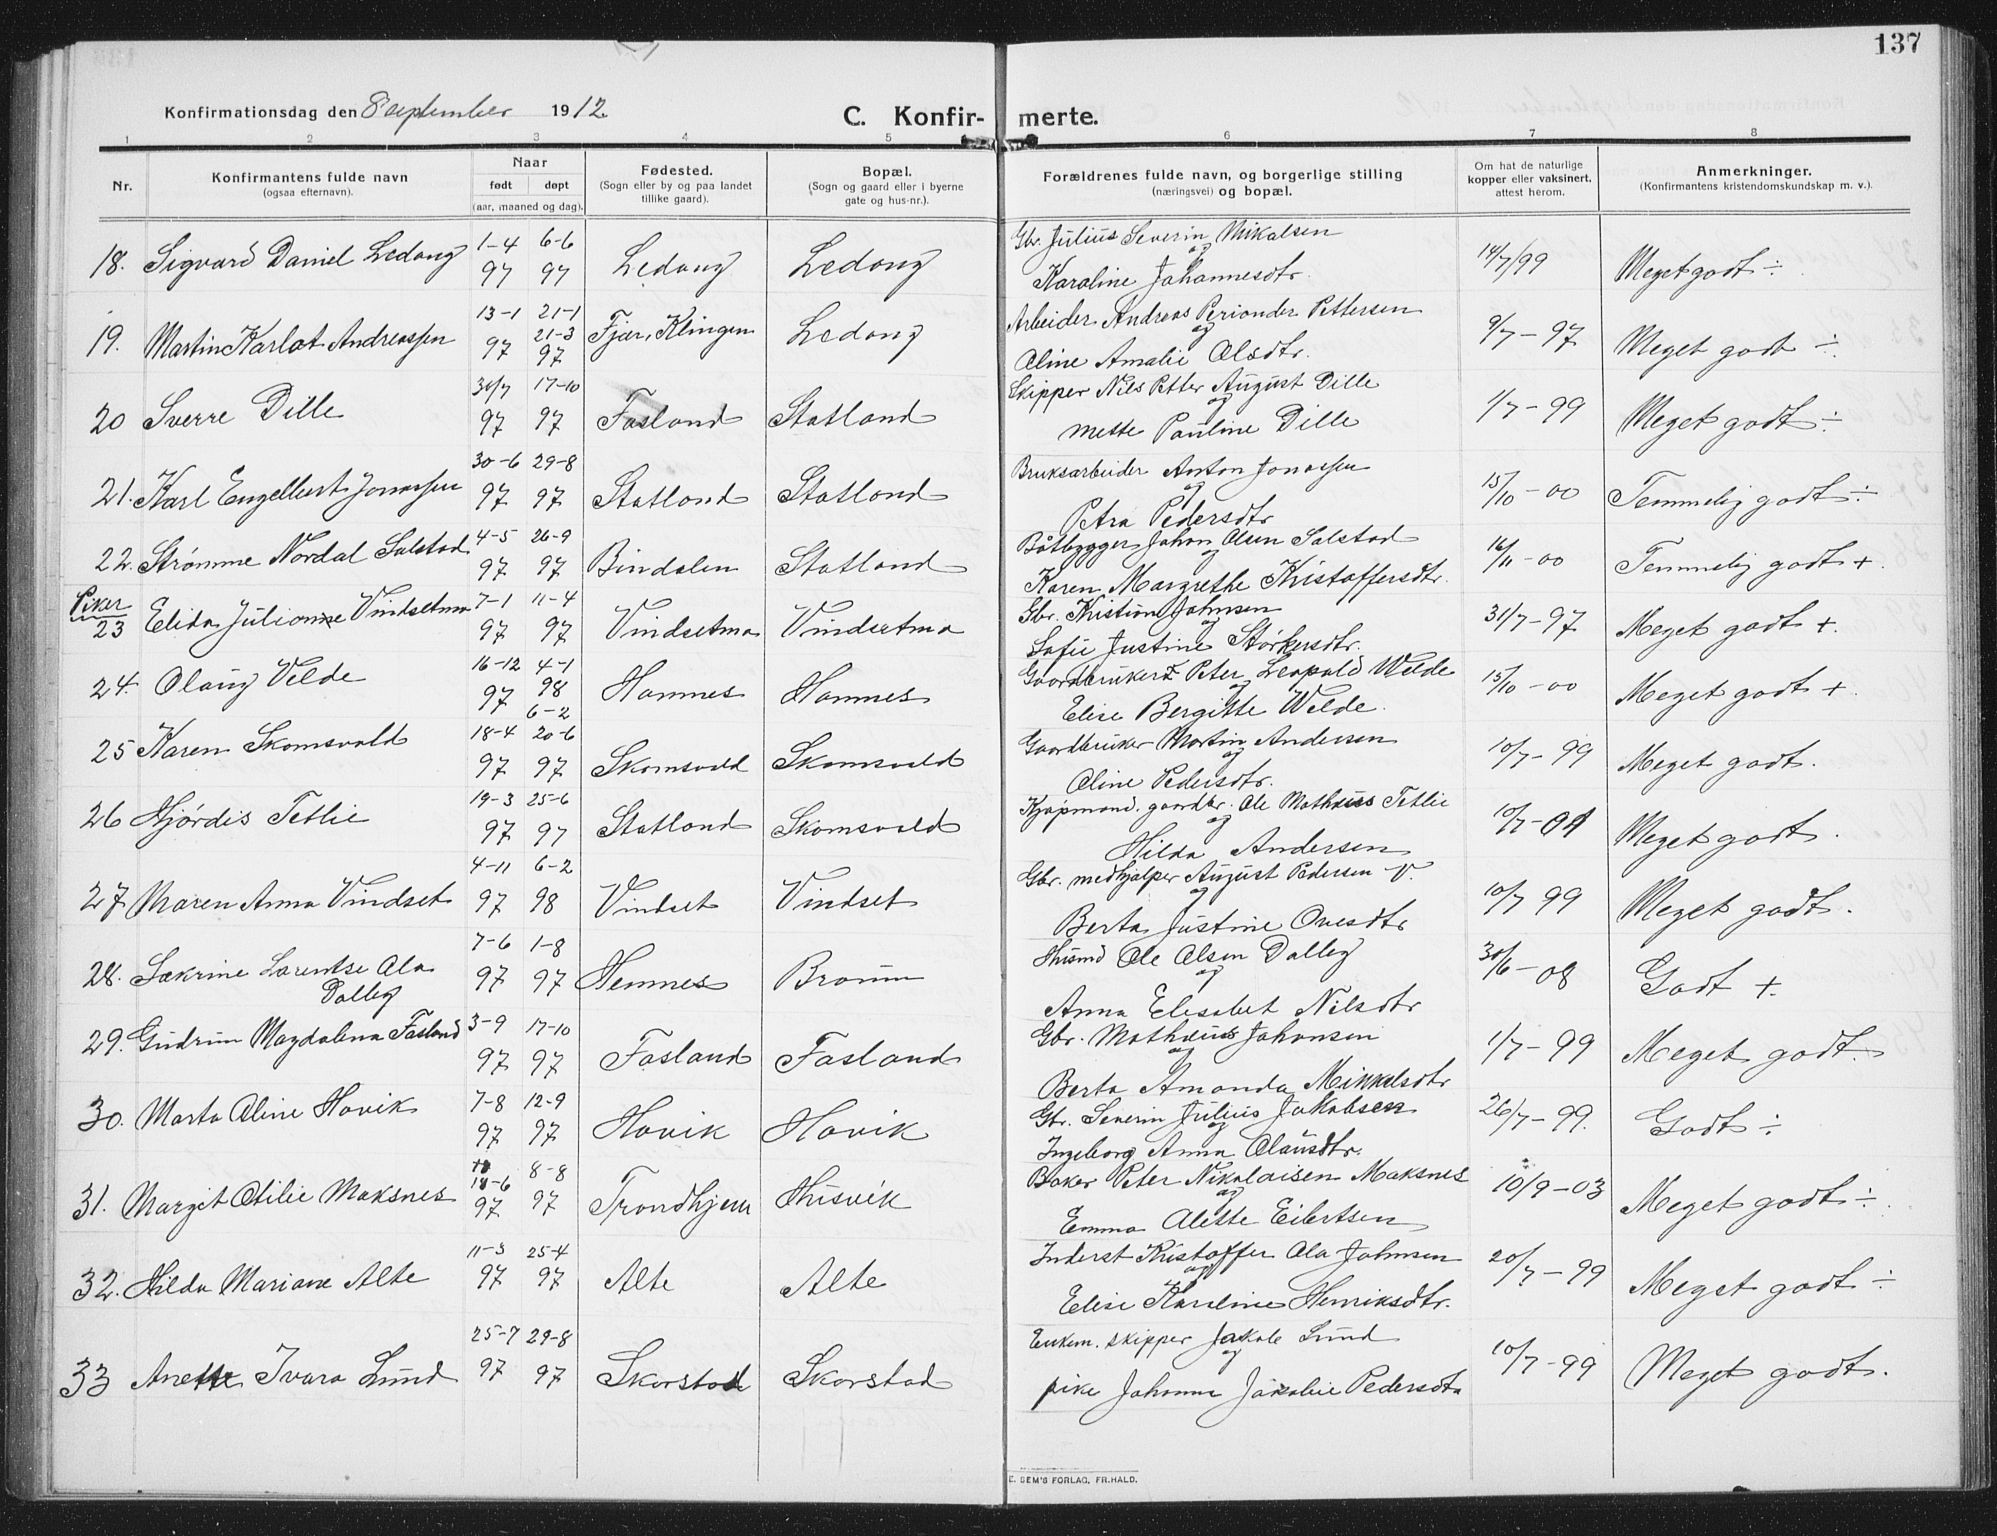 137
Konfirmationsdag den 8 september 1912.
C. Konfirmerte.
1 2 3 4 5 6 7 8
Nr.
Konfirmantens fulde navn
(ogsaa efternavn).
Naar
født døpt
(aar, maaned og dag).
Fødested.
(Sogn eller by og paa landet
tillike gaard).
Bopæl.
(Sogn og gaard eller i byerne
gate og hus-nr.).
Forældrenes fulde navn, og borgerlige stilling
(næringsvei) og bopæl.
Om hat de naturlige
kopper eller vaksinert,
attest herom.
Anmerkninger.
(Konfirmantens kristendomskundskap m. v.).
18. Sigvard Daniel Ledang 1-4 97 6-6 97 Ledang Ledang Gbr. Julius Severin Mikalsen
og
Karoline Johannesdtr. 14/7/99 Meget godt ÷
19. Martin Karlot Andreassen 13-1 97 21-1 21-3 97 Fjær, Klingen Ledang Arbeider Andreas Periander Pettersen
og
Oline Amalie Olsdtr. 9/7-97 Meget godt ÷
20 Sverre Dille 30/7 97 17-10 97 Fosland Statland Skipper Nils Petter August Dille
og
Mette Pauline Dille 1/7-99 Meget godt ÷
21. Karl Engelbert Jonassen 30-6 97 29-8 97 Statland Statland Bruksarbeider Anton Jonassen
og
Petra Pedersdtr 15/10-00 Temmelig godt ÷
22. Strømme Nordal Salstad 4-5 97 26-9 97 Bindalen Statland Båtbygger Johan Olsen Salstad
og
Karen Margrethe Kristoffersdtr. 16/11-00 Temmelig godt +.
Piker
23 Elida Julianne Vindsetmo 7-1 97 11-4 97 Vindsetmo Vindsetmo Gbr. Kristian Johnsen
og
Sofie Justine Størkersdtr. 31/7-97 Meget godt +.
24. Olaug Velde 16-12 97 4-1 98 6-2 Homnes Homnes Gaardbruker Peter Leopold Welde
og
Elise Bergitte Welde. 15/10-00 Meget godt +.
25 Karen Skomsvold 18-4 97 20-6 97 Skomsvold Skomsvold Gaardbruker Martin Andersen
og
Oline Pedersdtr. 10/7-99 Meget godt.
26 Hjørdis Tetlie 19-3 97 25-6 97 Statland Skomsvold Kjøpmand, gaardbr. Ole Mathæus Tetlie
og
Hilda Andersen 10/7-01 Meget godt.
27 Maren Anna Vindset 4-11 97 6-2 98 Vindset Vindset Gbr. medhjælper August Pedersen V.
og
Berta Justine Ovesdtr 10/7 99 Meget godt.
28. Sækrine Lorentse Ola
Dalley 7-6 97 1-8 97 Hemnes Braun Husmd Ole Olsen Dalley
og
Anna Elisabet Nilsdtr 30/6-08 Godt +.
29. Gudrun Magdalena Fosland 3-9 97 17-10 97 Fosland Fosland Gbr. Mathæus Johansen
og
Berta Amanda Mikkelsdtr 1/7-99 Meget godt.
30. Marta Oline Hovik 7-8 97 12-9 97 Hovik Hovik Gbr. Severin Julius Jakobsen
og
Ingeborg Anna Olausdtr. 26/7-99. Godt ÷
31. Margit Otilie Moksnes 18-6 97 8-8 97 Trondhjem Husvik Baker Peter Nikolaisen Moksnes
og
Emma Alette Eilertsen 10/9-03 Meget godt ÷
32. Hilda Mariane Alte 11-3 97 25-4 97 Alte Alte Inderst Kristoffer Ola Johnsen
og
Elise Karoline Henriksdtr. 20/7-99 Meget godt ÷
33 Anette Ivara Lund 25-7 97 29-8 97 Skorstad Skorstad Enkem. skipper Jakob Lund
og
pike Johanna Jakobie Pedersdtr 10/7-99 Meget godt.
E. SEM'S FORLAG, FR.HALD.